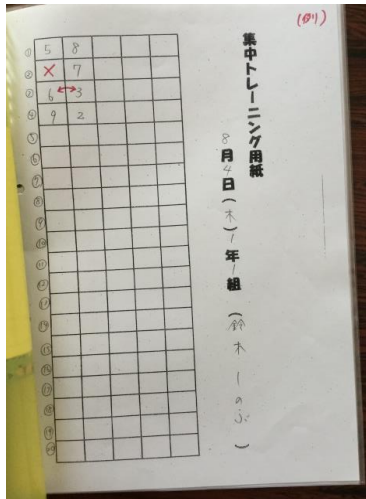 (例)
集中トレーニング用紙
8月4日(木)1年1組 (鈴木しのぶ)
① 5 8
② × 7
③ 6 ↔ 3
④ 9 2
⑤
⑥
⑦
⑧
⑨
⑩
⑪
⑫
⑬
⑭
⑮
⑯
⑰
⑱
⑲
⑳